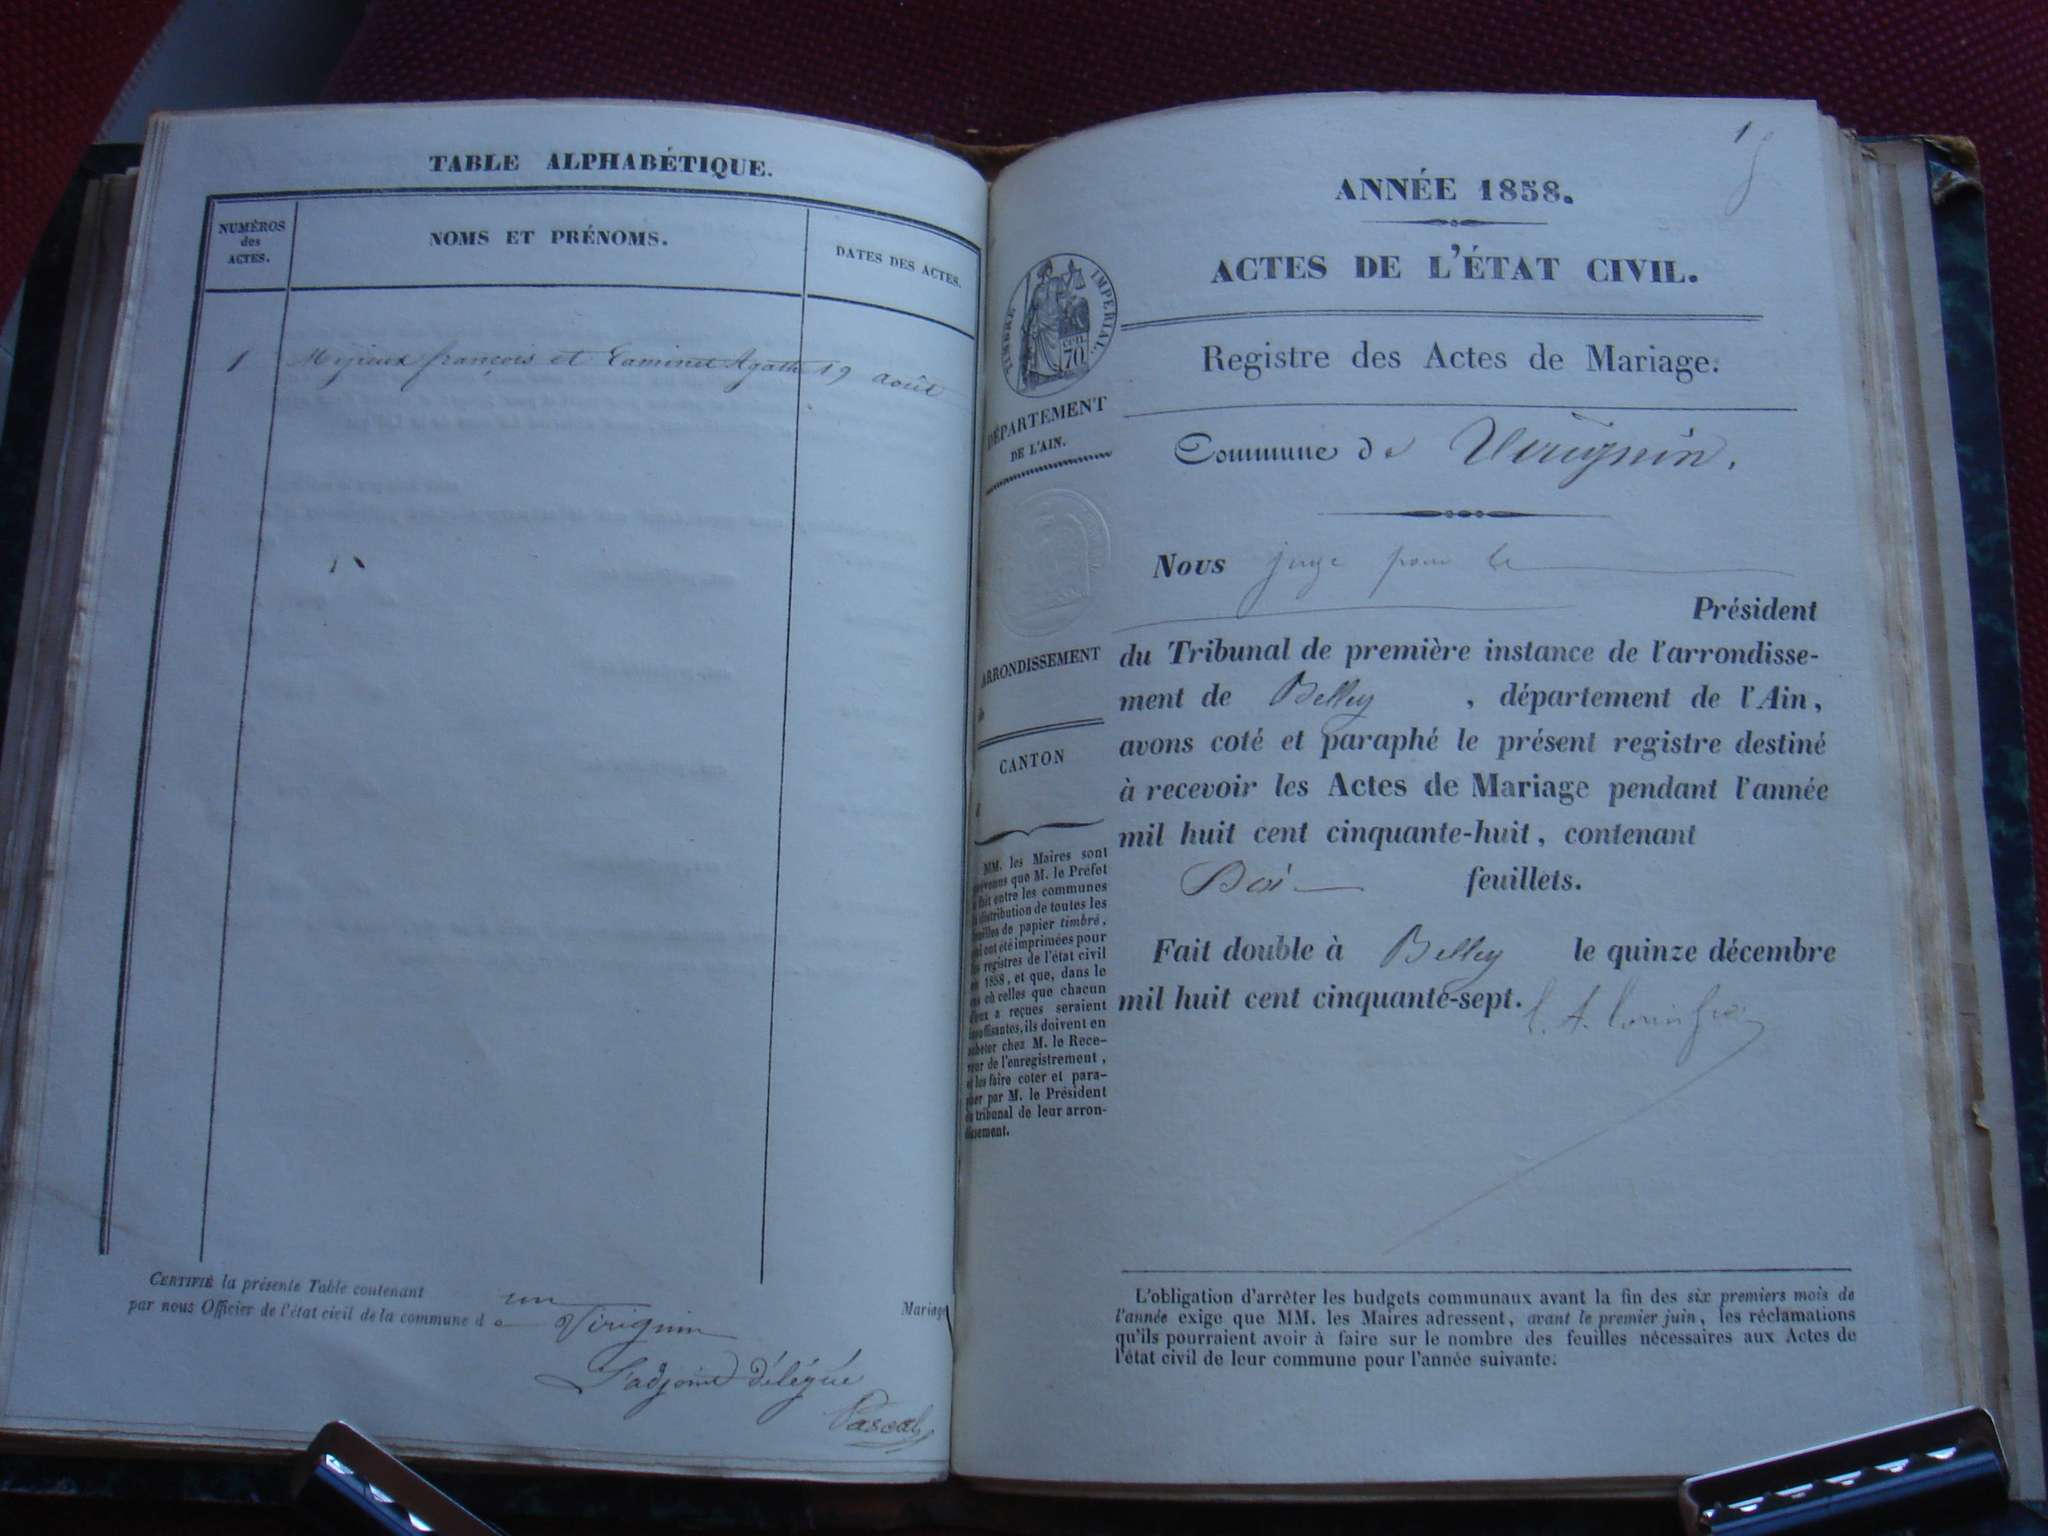 TABLE ALPHABÉTIQUE.
NUMÉROS
des
ACTES.
NOMS ET PRÉNOMS.
DATES DES ACTES.
1 François et Agathe 19 août
CERTIFIÉ la présente Table contenant un Mariage
par nous Officier de l'état civil de la commune de Virignin
L'adjoint délégué
Pascal
1
ANNÉE 1858.
ACTES DE L'ÉTAT CIVIL.
TIMBRE IMPÉRIAL.
CEN. 70
Registre des Actes de Mariage.
DÉPARTEMENT
DE L'AIN.
Commune de Virignin.
Nous juge pour le
Président
du Tribunal de première instance de l'arrondisse-
ment de Belley, département de l'Ain,
avons coté et paraphé le présent registre destiné
à recevoir les Actes de Mariage pendant l'année
mil huit cent cinquante-huit, contenant
feuillets.
Fait double à Belley le quinze décembre
mil huit cent cinquante-sept.
ARRONDISSEMENT
CANTON
MM. les Maires sont
prévenus que M. le Préfet
a fait entre les communes
la distribution de toutes les
feuilles de papier timbré,
qui ont été imprimées pour
les registres de l'état civil
en 1858, et que, dans le
cas où celles que chacun
d'eux a reçues seraient
insuffisantes, ils doivent en
acheter chez M. le Rece-
veur de l'enregistrement,
et les faire coter et para-
pher par M. le Président
du tribunal de leur arron-
dissement.
L'obligation d'arrêter les budgets communaux avant la fin des six premiers mois de
l'année exige que MM. les Maires adressent, avant le premier juin, les réclamations
qu'ils pourraient avoir à faire sur le nombre des feuilles nécessaires aux Actes de
l'état civil de leur commune pour l'année suivante.